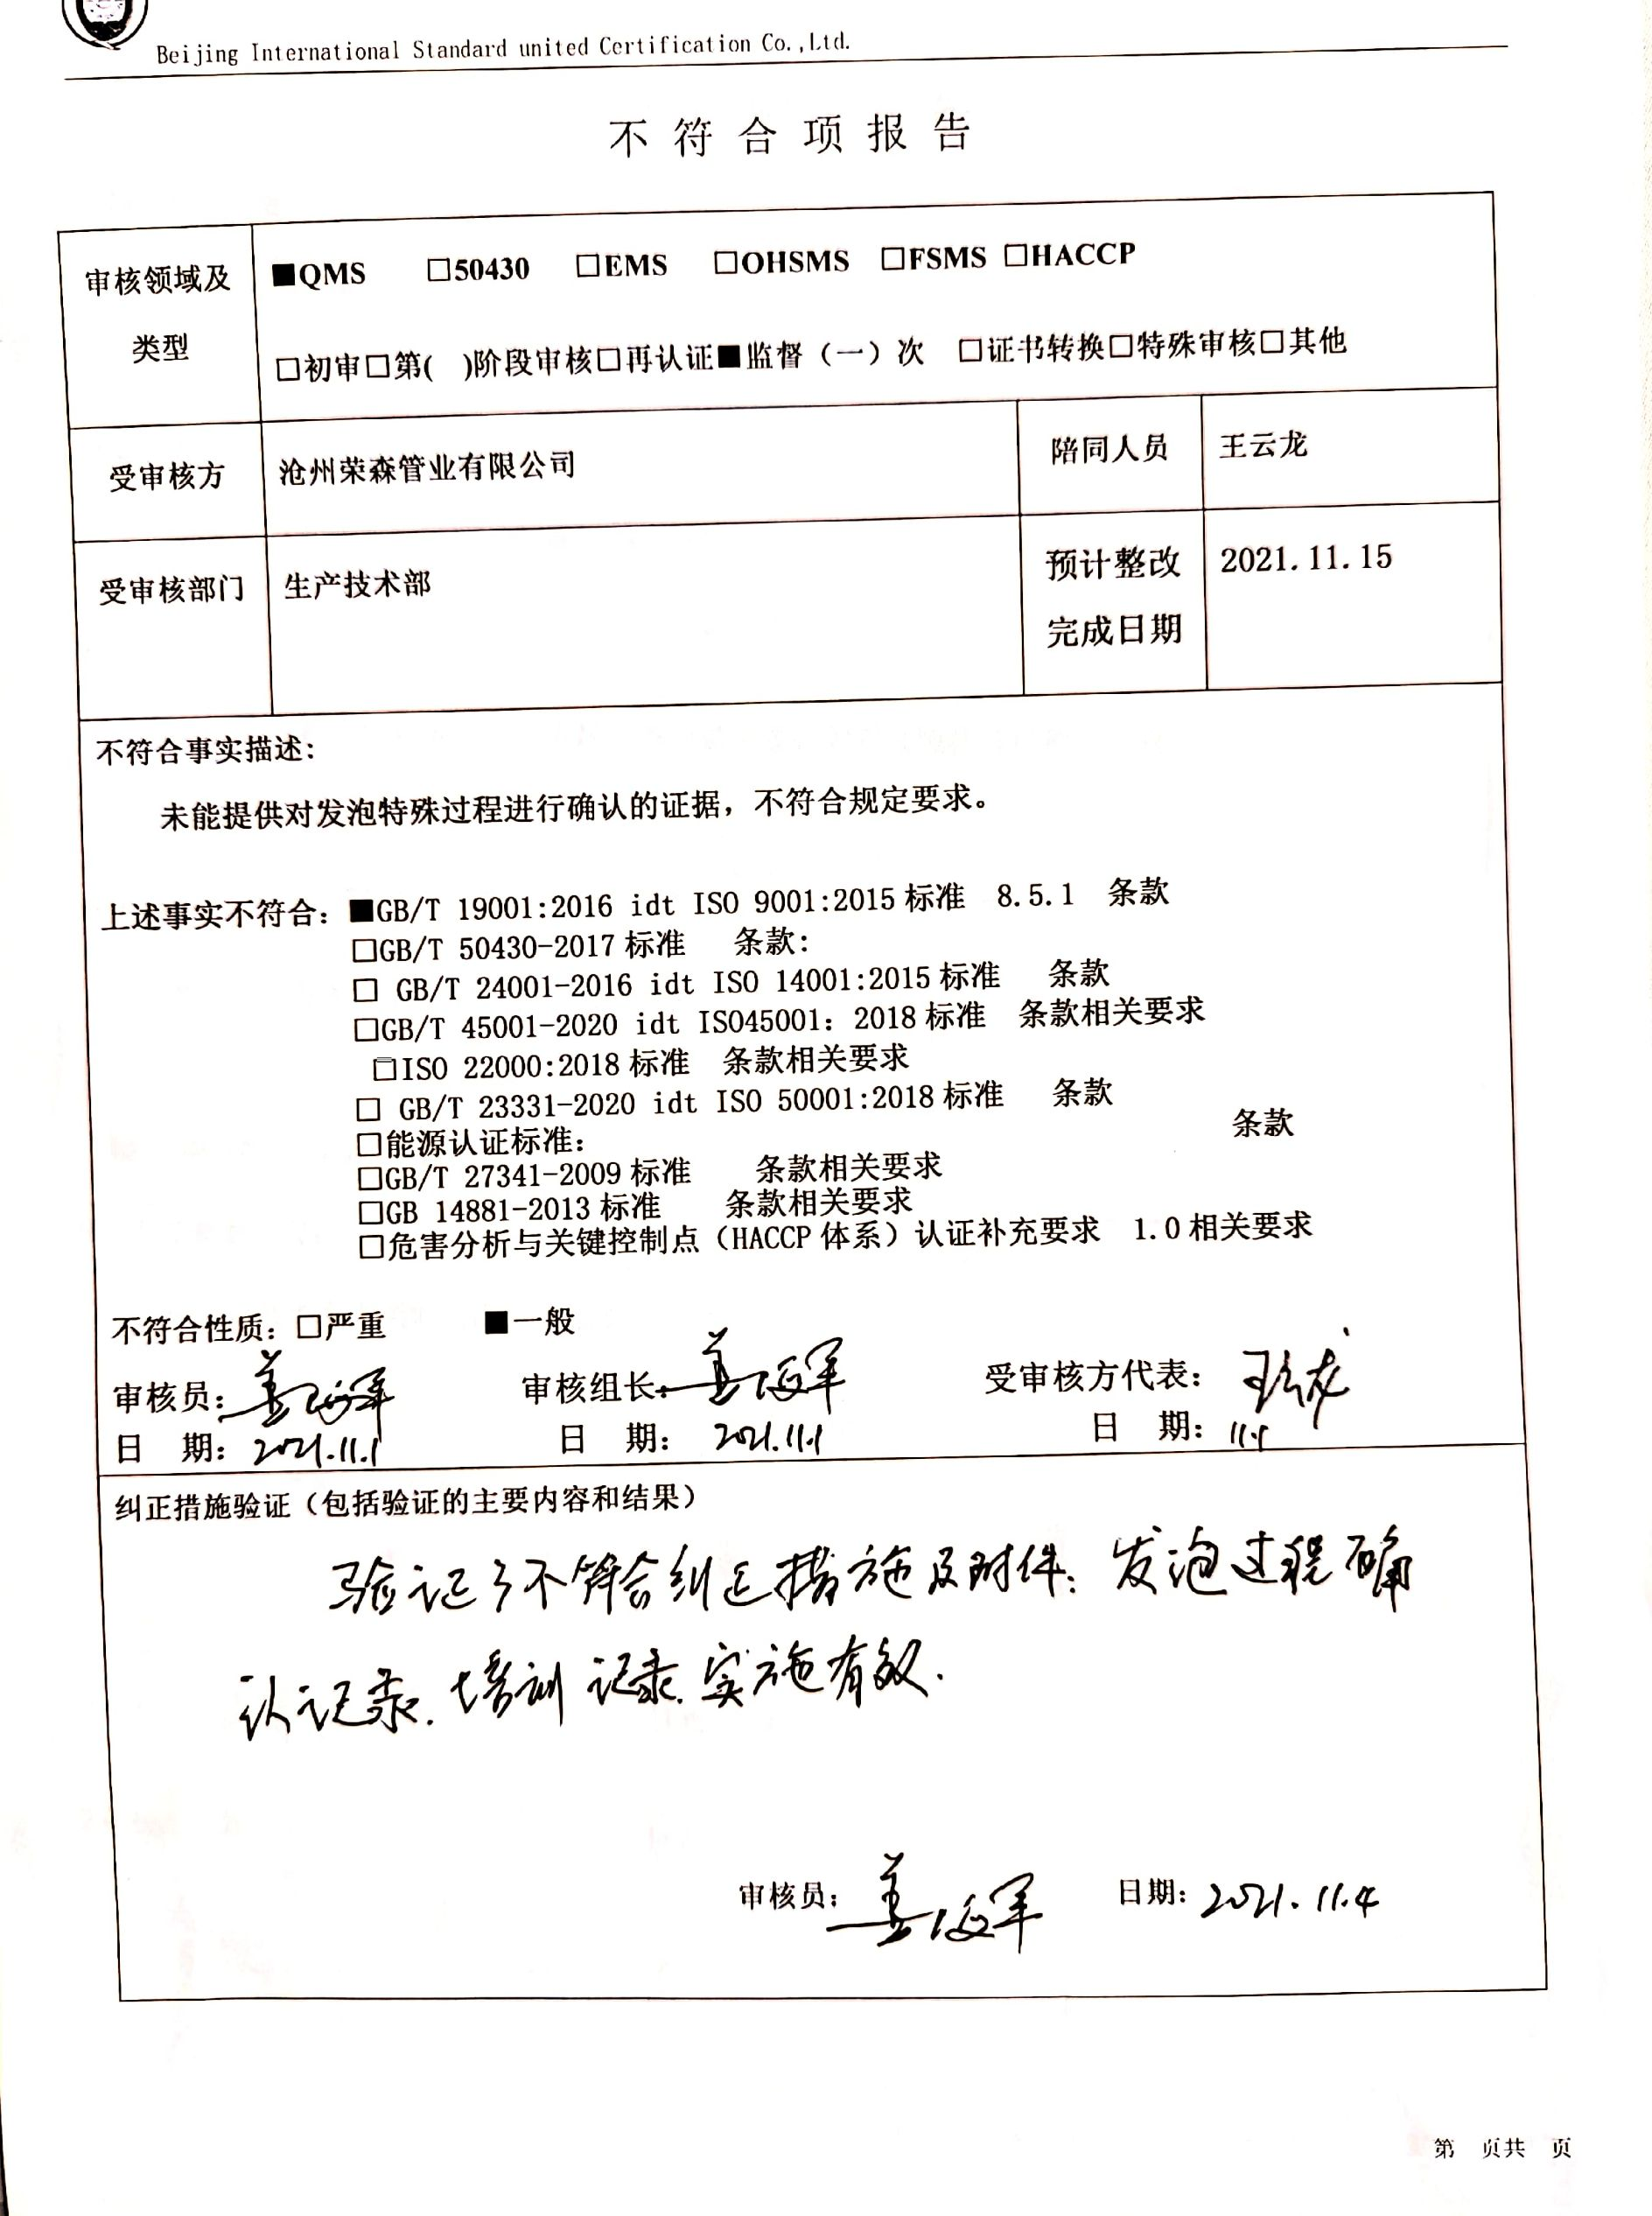 Beijing International Standard united Certification Co.,Ltd.
不符合项报告
审核领域及类型
■QMS □50430 □EMS □OHSMS □FSMS □HACCP
□初审□第( )阶段审核□再认证■监督（一）次 □证书转换□特殊审核□其他
受审核方 沧州荣森管业有限公司 陪同人员 王云龙
受审核部门 生产技术部 预计整改完成日期 2021.11.15
不符合事实描述：
未能提供对发泡特殊过程进行确认的证据，不符合规定要求。
上述事实不符合：■GB/T 19001:2016 idt ISO 9001:2015标准 8.5.1 条款
□GB/T 50430-2017标准 条款：
□ GB/T 24001-2016 idt ISO 14001:2015标准 条款
□GB/T 45001-2020 idt ISO45001：2018标准 条款相关要求
□ISO 22000:2018标准 条款相关要求
□ GB/T 23331-2020 idt ISO 50001:2018标准 条款
□能源认证标准： 条款
□GB/T 27341-2009标准 条款相关要求
□GB 14881-2013标准 条款相关要求
□危害分析与关键控制点（HACCP体系）认证补充要求 1.0相关要求
不符合性质：□严重 ■一般
审核员： 审核组长： 受审核方代表：王云龙
日 期：2021.11.1 日 期：2021.11.1 日 期：11.1
纠正措施验证（包括验证的主要内容和结果）
验证了不符合纠正措施及附件：发泡过程确
认记录.培训记录.实施有效.
审核员： 日期：2021.11.4
第 页共 页